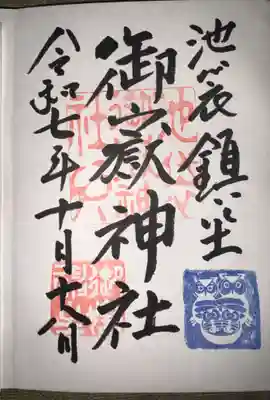 池袋鎮座
御嶽神社
令和七年十月六日